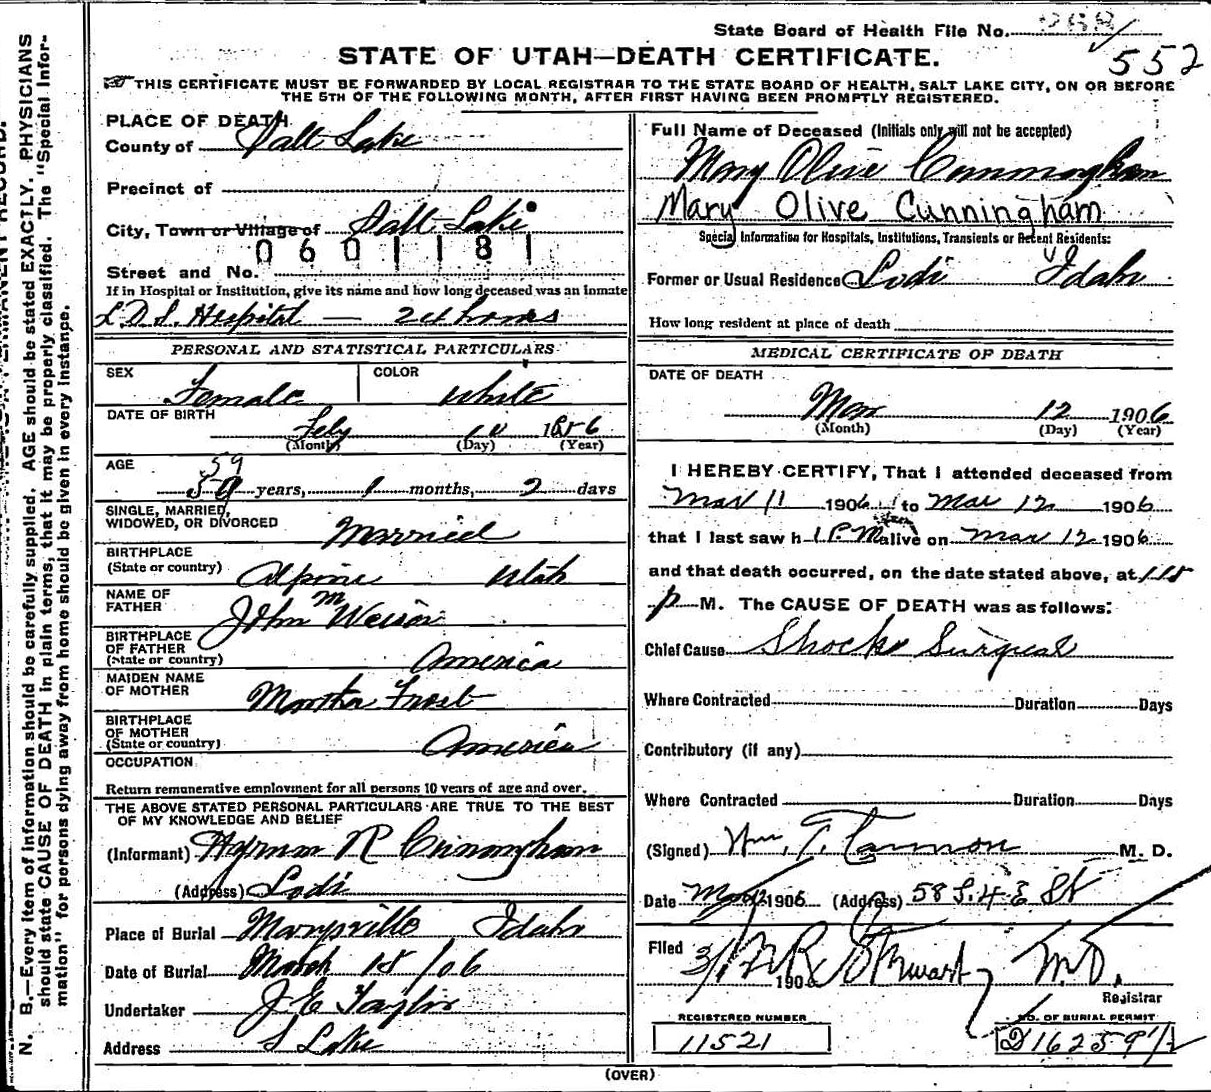 State Board of Health File No.
552
STATE OF UTAH—DEATH CERTIFICATE.
THIS CERTIFICATE MUST BE FORWARDED BY LOCAL REGISTRAR TO THE STATE BOARD OF HEALTH, SALT LAKE CITY, ON OR BEFORE
THE 5TH OF THE FOLLOWING MONTH, AFTER FIRST HAVING BEEN PROMPTLY REGISTERED.
N. B.—Every item of information should be carefully supplied. AGE should be stated EXACTLY. PHYSICIANS
should state CAUSE OF DEATH in plain terms, that it may be properly classified. The "Special Infor-
mation" for persons dying away from home should be given in every instance.
PLACE OF DEATH
County of Salt Lake
Precinct of
City, Town or Village of Salt Lake
0601181
Street and No.
If in Hospital or Institution, give its name and how long deceased was an inmate
L.D.S. Hospital — 24 hours
PERSONAL AND STATISTICAL PARTICULARS
SEX Female COLOR White
DATE OF BIRTH Feby 10
(Month) (Day) (Year)
AGE 59
59 years, 1 months, 2 days
SINGLE, MARRIED,
WIDOWED, OR DIVORCED Married
BIRTHPLACE
(State or country) Alpine Utah
NAME OF
FATHER John M
BIRTHPLACE
OF FATHER
(State or country) America
MAIDEN NAME
OF MOTHER Martha Frost
BIRTHPLACE
OF MOTHER
(State or country) America
OCCUPATION
Return remunerative employment for all persons 10 years of age and over.
THE ABOVE STATED PERSONAL PARTICULARS ARE TRUE TO THE BEST
OF MY KNOWLEDGE AND BELIEF
(Informant) Hyrum R Cunningham
(Address) Lodi
Place of Burial Marysville Idaho
Date of Burial March 18/06
Undertaker J E Taylor
Address S Lake
Full Name of Deceased (Initials only will not be accepted)
Mary Olive Cunningham
Mary Olive Cunningham
Special Information for Hospitals, Institutions, Transients or Recent Residents:
Former or Usual Residence Lodi Idaho
How long resident at place of death
MEDICAL CERTIFICATE OF DEATH
DATE OF DEATH
Mar 12 1906
(Month) (Day) (Year)
I HEREBY CERTIFY, That I attended deceased from
Mar 11 1906 to Mar 12 1906
that I last saw h 1 P.M alive on Mar 12 1906
and that death occurred, on the date stated above, at 115
p M. The CAUSE OF DEATH was as follows:
Chief Cause Shock Surgical
Where Contracted Duration Days
Contributory (if any)
Where Contracted Duration Days
(Signed) Wm. T. Cannon M. D.
Date Mar 12 1906 (Address) 58 S. 4 E St
Filed 3/ 190 Stewart M.D.
Registrar
REGISTERED NUMBER
11521
NO. OF BURIAL PERMIT
D16259 1/2
(OVER)